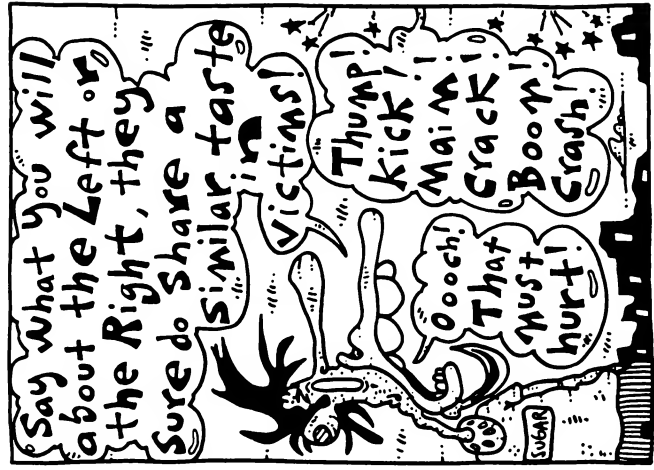 Say what you will
about the Left or
the Right, they
sure do share a
similar taste
in
victims!
Thump!
Kick!
Maim!
Crack!
Boom!
Crash!
Oooch!
That
must
hurt!
SUGAR